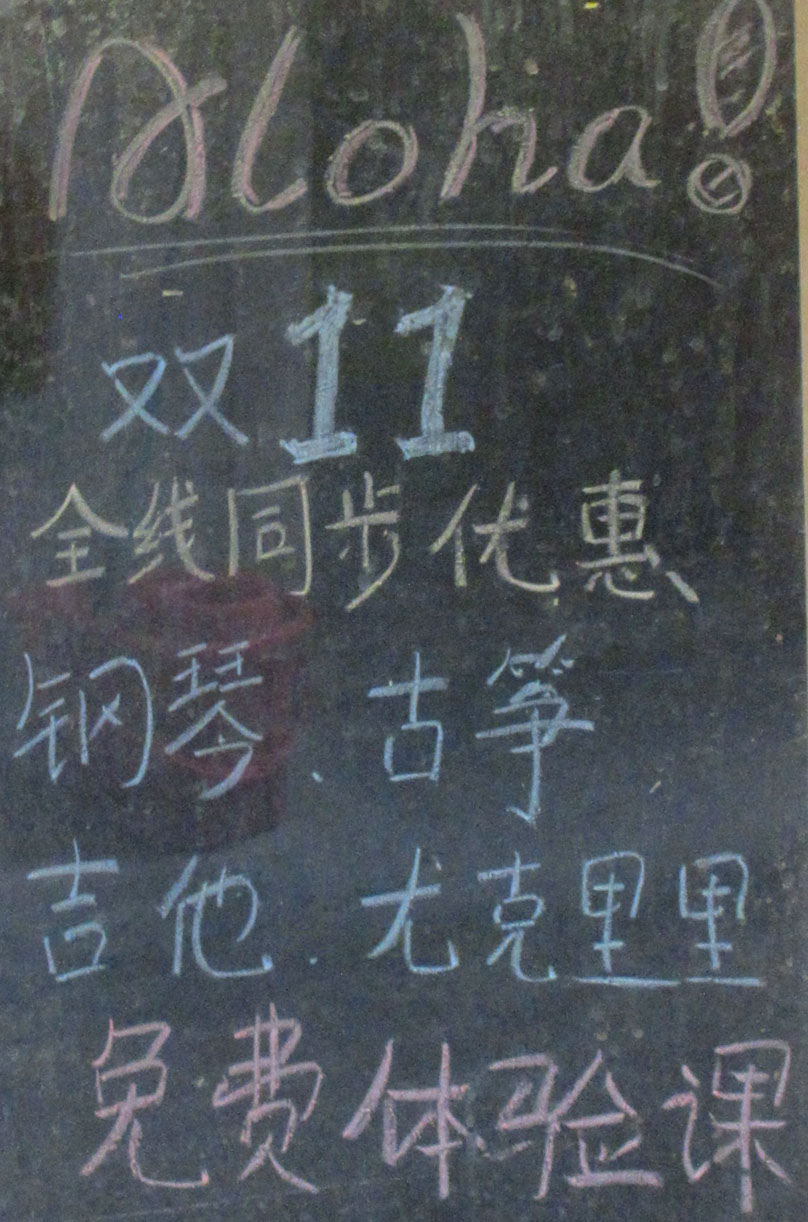 Aloha!
双11
全线同步优惠
钢琴、古筝
吉他、尤克里里
免费体验课